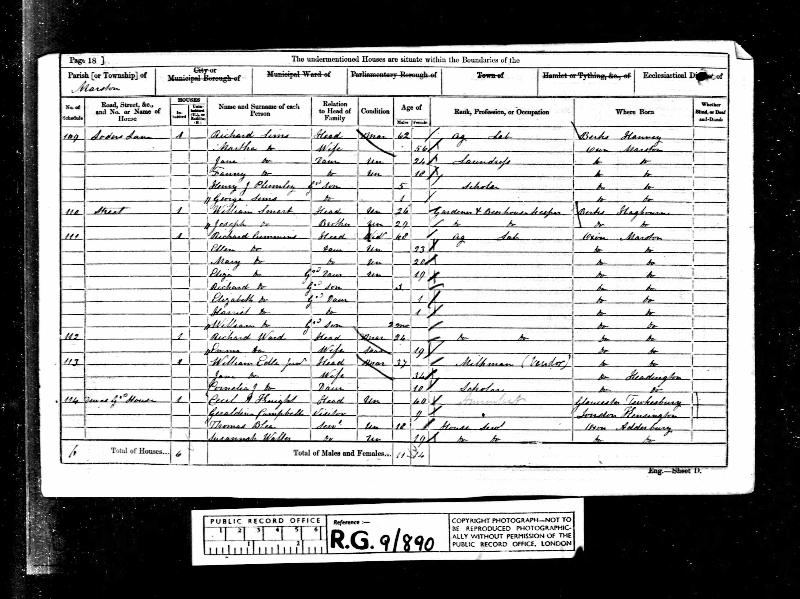 Page 18 ]
The undermentioned Houses are situate within the Boundaries of the
Parish [or Township] of
City or Municipal Borough of
Municipal Ward of
Parliamentary Borough of
Town of
Hamlet or Tything, &c., of
Ecclesiastical District of
Marston
No. of Schedule
Road, Street, &c., and No. or Name of House
HOUSES
Name and Surname of each Person
Relation to Head of Family
Condition
Age of
Males
Females
Rank, Profession, or Occupation
Where Born
Whether Blind, or Deaf-and-Dumb
109 Lane 1 Richard Sims Head Mar 62 Ag Lab Berks Hanney
Martha Do Wife 56 Oxon Marston
Jane Do Daur Un 24 Laundress Do Do
Fanny Do Do Un 18 Do Do
Henry J Plumley Gd Son 5 Scholar Do Do
George Sims Do 1 Do Do
110 Street 1 William Smart Head Un 26 Gardener & Beerhouse keeper Berks Hagbourn
Joseph Do Brother Un 29 Do Do Do Do
111 1 Richard Cummins Head Wid 48 Ag Lab Oxon Marston
Ellen Do Daur Un 23 Do Do
Mary Do Do Un 20 Do Do
Eliza Do Gd Daur Un 19 Do Do
Richard Do Gd Son 3 Do Do
Elizabeth Do Gd Daur 1 Do Do
Harriet Do Do 1 Do Do
William Do Gd Son 2 mo Do Do
112 1 Richard Ward Head Mar 24 Do Do Do Do
Emma Do Wife 19 Do Do
113 1 William Edla Junr Head Mar 37 Milkman (Vendor) Do Do
Jane Do Wife 34 Do Headington
Cornelia J Do Daur 10 Scholar Do Do
114 House 1 Cecil Knight Head Un 40 Gloucester Tewkesbury
Geraldina Campbell Visitor 9 London Kensington
Thomas Servt Un 18 House Servt Oxon Adderbury
Susannah Walter Do Un 19 Do Do Do Do
6 Total of Houses... 6 Total of Males and Females... 11 14
Eng.—Sheet D.
PUBLIC RECORD OFFICE
1 2 3 4 5 6
1 2
Reference :—
R.G. 9/890
COPYRIGHT PHOTOGRAPH—NOT TO
BE REPRODUCED PHOTOGRAPHIC-
ALLY WITHOUT PERMISSION OF THE
PUBLIC RECORD OFFICE, LONDON